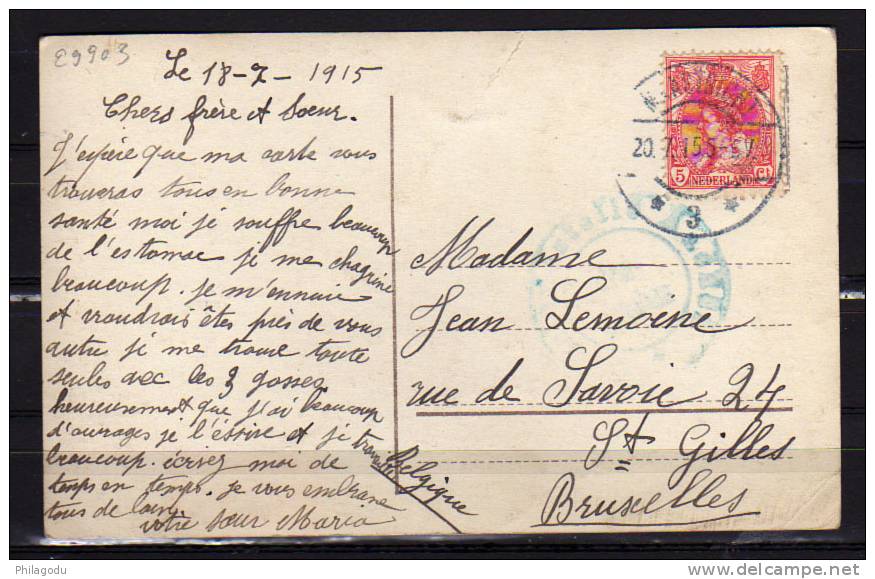 E9903
Le 18-7-1915
Chers frère et Soeur.
J'espère que ma carte vous
trouveras tous en bonne
santé moi je souffre beaucoup
de l'estomac je me chagrine
beaucoup. je m'ennuie
et voudrais êtes près de vous
autre je me trouve toute
seules avec les 3 gosses
heureusement que j'ai beaucoup
d'ouvrages je l'essire et je travaille
beaucoup. écrivez moi de
temps en temps. je vous embrasse
tous de loin
votre soeur Maria
20.7.15 5-6V
3
5 Ct
NEDERLAND
Madame
Jean Lemoine
rue de Savoie 24
St Gilles
Bruxelles
Belgique
Philagodu
www.delcampe.net